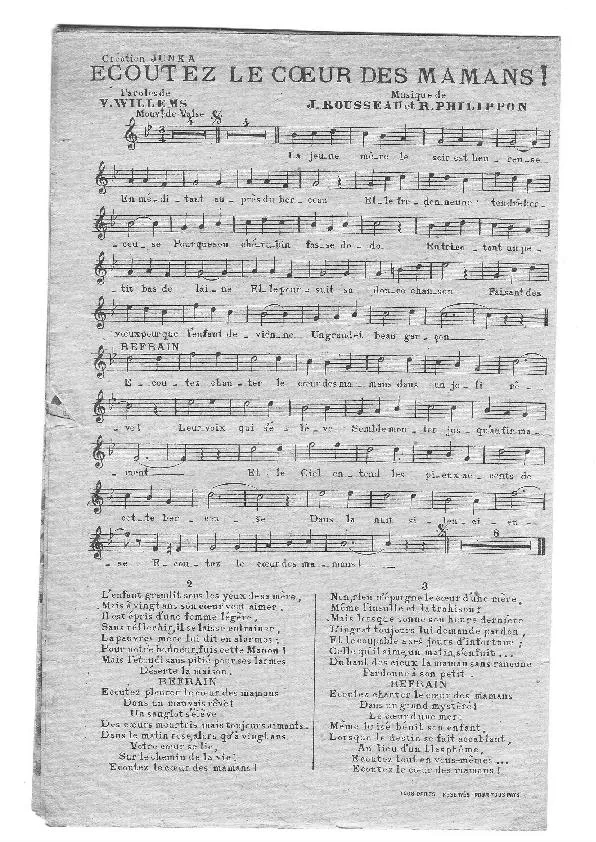 Création JUNKA
ECOUTEZ LE CŒUR DES MAMANS!
Paroles de
V. WILLEMS
Musique de
J. ROUSSEAU et R. PHILIPPON
Mouvt de Valse
3
4
3
La jeu_ne mè_re le soir est heu_reu_se
En mé_di_tant au_près du ber_ceau El_le fre_don_ne une tendre ber_
_ceu_se Pour que son ché_ru_bin fas_se do_do. En trico_tant un pe_
_tit bas de lai_ne El_le pour_suit sa dou_ce chan_son Faisant des
vœux pour que l'enfant de_vien_ne Un grand et beau gar_çon
REFRAIN
E_cou_tez chan_ter le cœur des ma_mans dans un jo_li rê_
_ve! Leur voix qui s'é_lè_ve Semble mon_ter jus_qu'au fir_ma_
_ment Et le Ciel en_tend les pi_eux ac_cents de
cet_te ber_ceu_se Dans la nuit si_len_ci_eu_
6
_se E_cou_tez le cœur des ma_mans!
2
L'enfant grandit sous les yeux de sa mère,
Mais à vingt ans son cœur veut aimer.
Il est épris d'une femme légère,
Sans réfléchir, il se laisse entraîner,
La pauvre mère lui dit en alarmes:
Pour notre bonheur, fuis cette Manon!
Mais l'enfant sans pitié pour ses larmes
Déserte la maison.
REFRAIN
Ecoutez pleurer le cœur des mamans
Dans un mauvais rêve!
Un sanglot s'élève
Des cœurs meurtris mais toujours aimants.
Dans le matin rose, alors qu'à vingt ans
Votre cœur se lie,
Sur le chemin de la vie!
Ecoutez le cœur des mamans!
3
Non, rien n'épargne le cœur d'une mère,
Même l'insulte et la trahison!
Mais lorsque sonne son heure dernière
L'ingrat toujours lui demande pardon,
Et le coupable aux jours d'infortune;
Celle qu'il aime, un matin, s'enfuit...
Du haut des cieux la maman sans rancune
Pardonne à son petit.
REFRAIN
Ecoutez chanter le cœur des mamans
Dans un grand mystère!
Le cœur d'une mère
Même brisé bénit son enfant.
Lorsque le destin se fait accablant,
Au lieu d'un blasphème,
Ecoutez tout en vous-mêmes...
Ecoutez le cœur des mamans!
TOUS DROITS RÉSERVÉS POUR TOUS PAYS